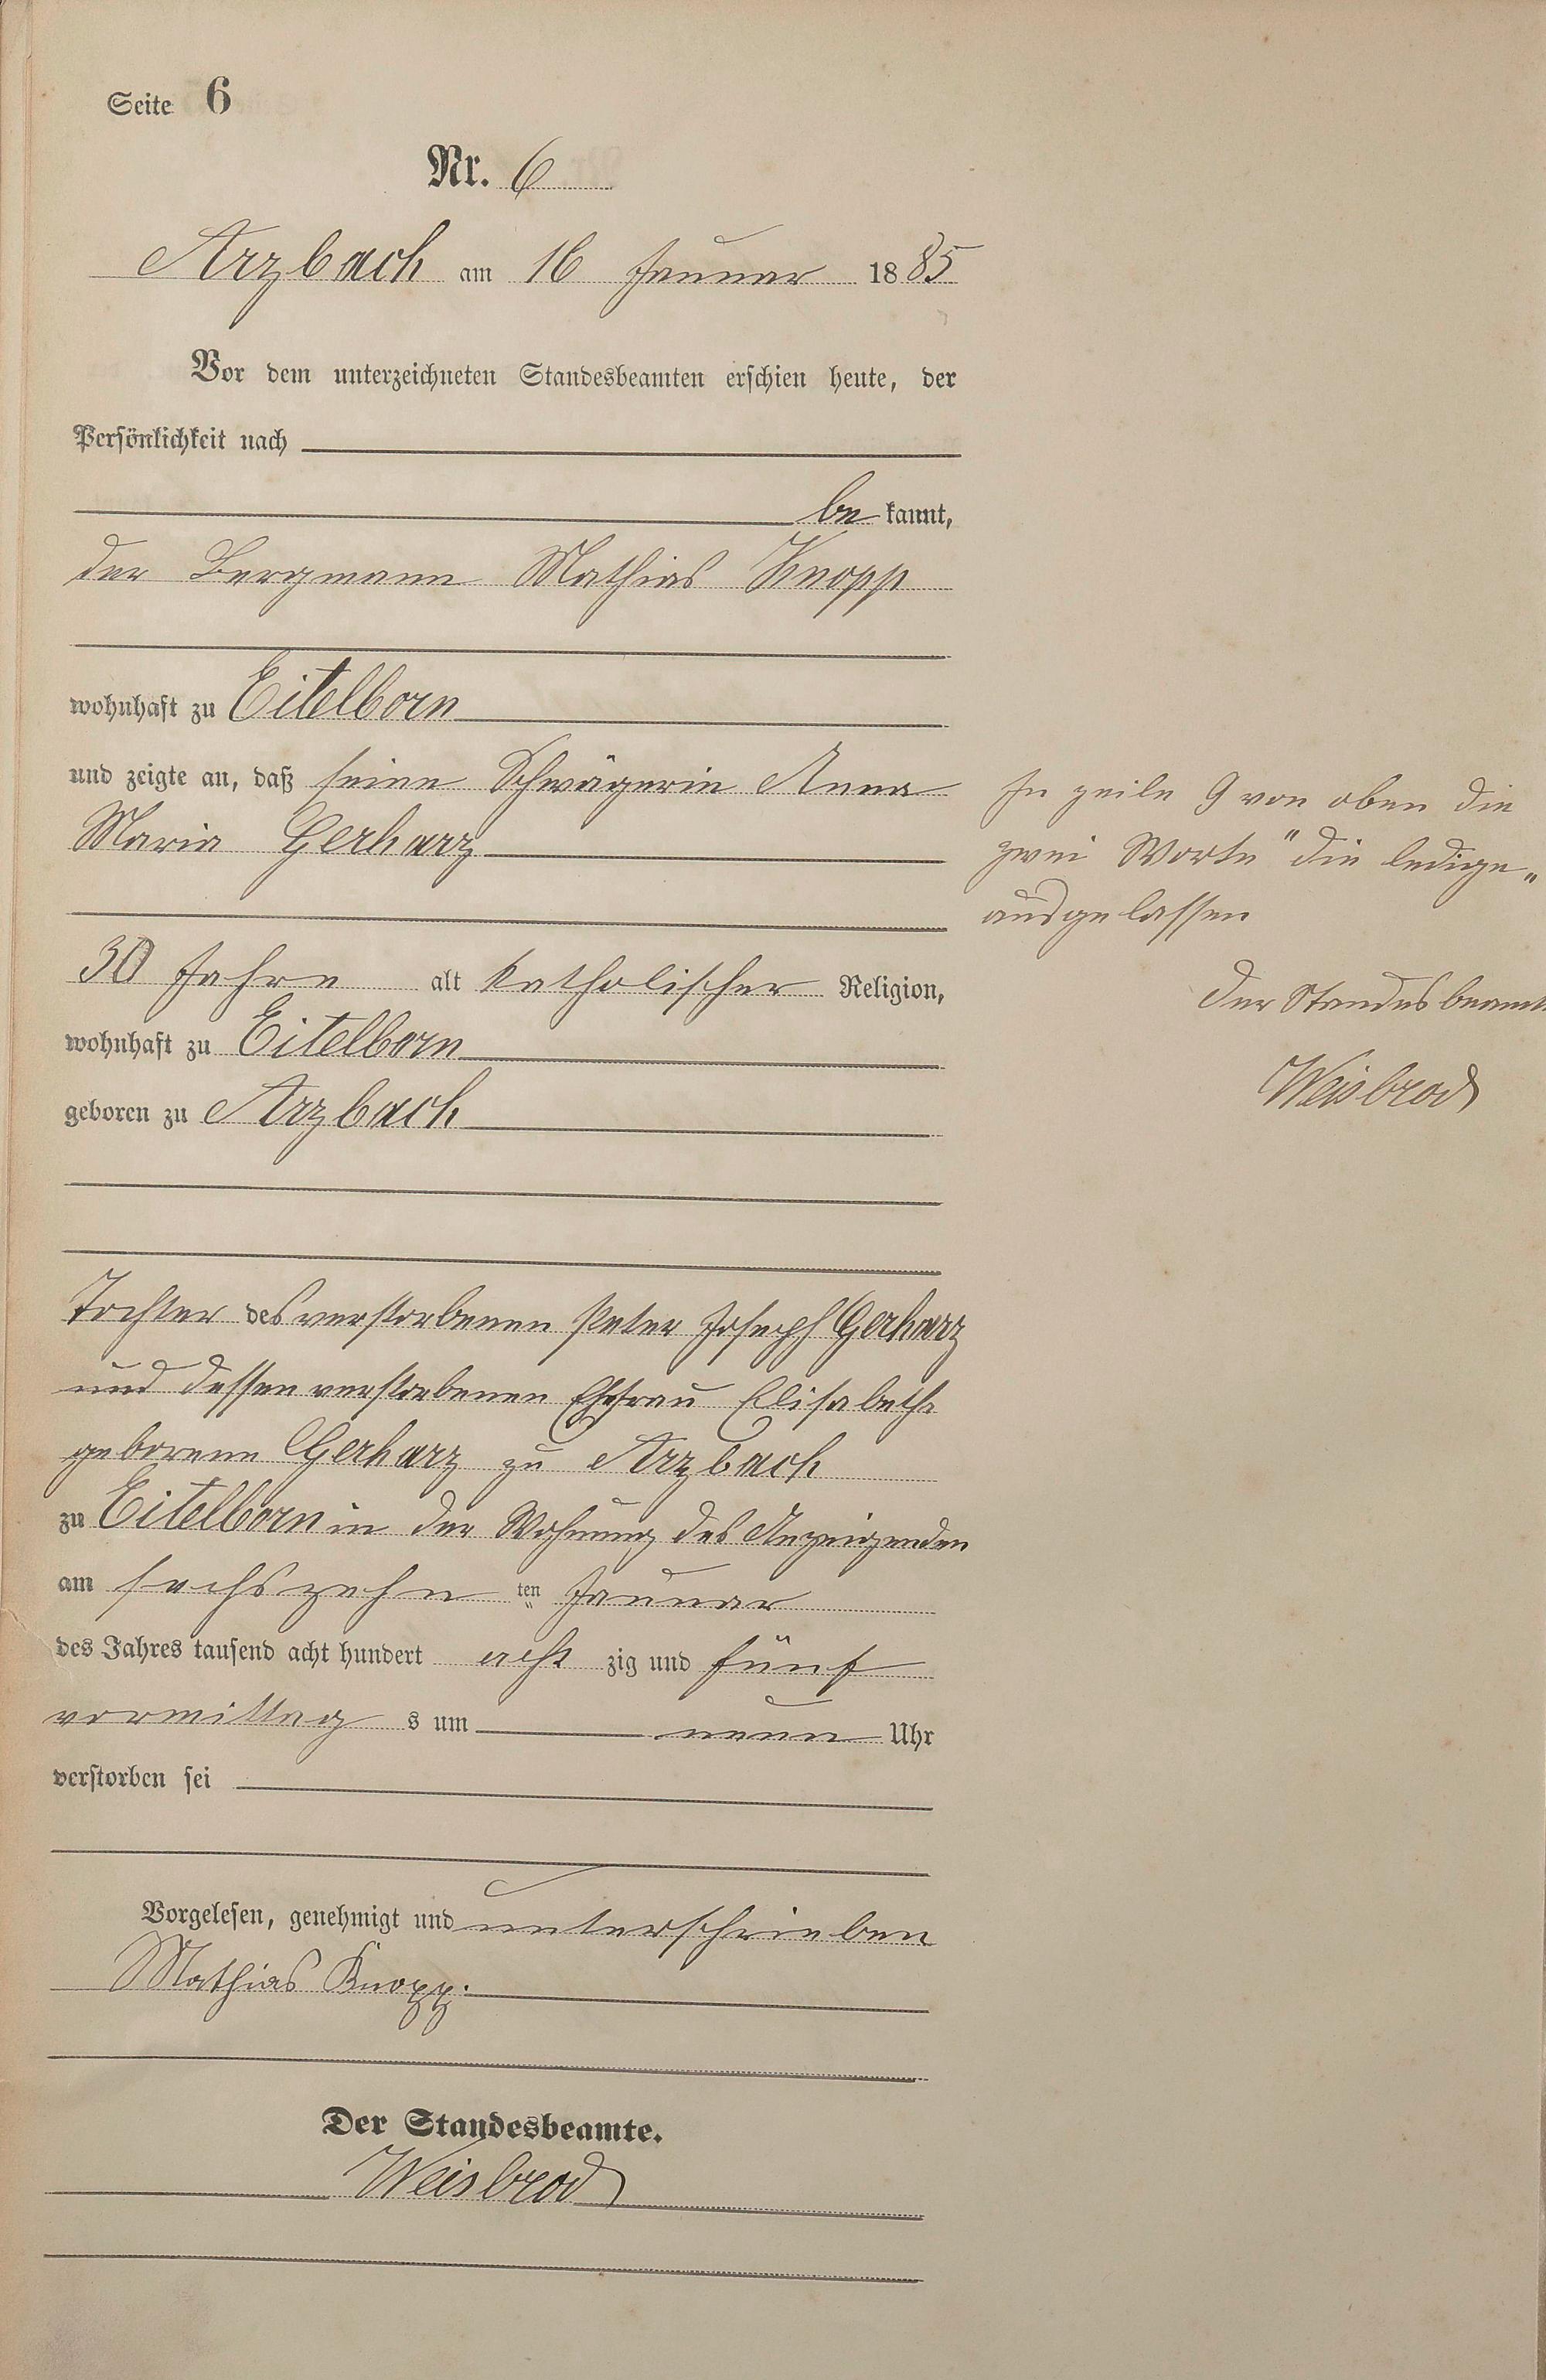 Seite 6
Nr. 6
Arzbach am 16 Januar 1885
Vor dem unterzeichneten Standesbeamten erschien heute, der
Persönlichkeit nach
be kannt,
der Bergmann Mathias Knopp
wohnhaft zu Eitelborn
und zeigte an, daß seine Schwägerin Anna
Maria Gerharz
30 Jahre alt katholischer Religion,
wohnhaft zu Eitelborn
geboren zu Arzbach
Tochter des verstorbenen Peter Joseph Gerharz
und dessen verstorbenen Ehefrau Elisabeth
geborene Gerharz zu Arzbach
zu Eitelborn in der Wohnung des Anzeigenden
am sechszehn ten Januar
des Jahres tausend acht hundert acht zig und fünf
vormittag s um neun Uhr
verstorben sei
Vorgelesen, genehmigt und unterschrieben
Mathias Knopp.
Der Standesbeamte.
Weisbrod
In Zeile 9 von oben die
zwei Worte "die ledige"
ausgelassen
Der Standesbeamte
Weisbrod